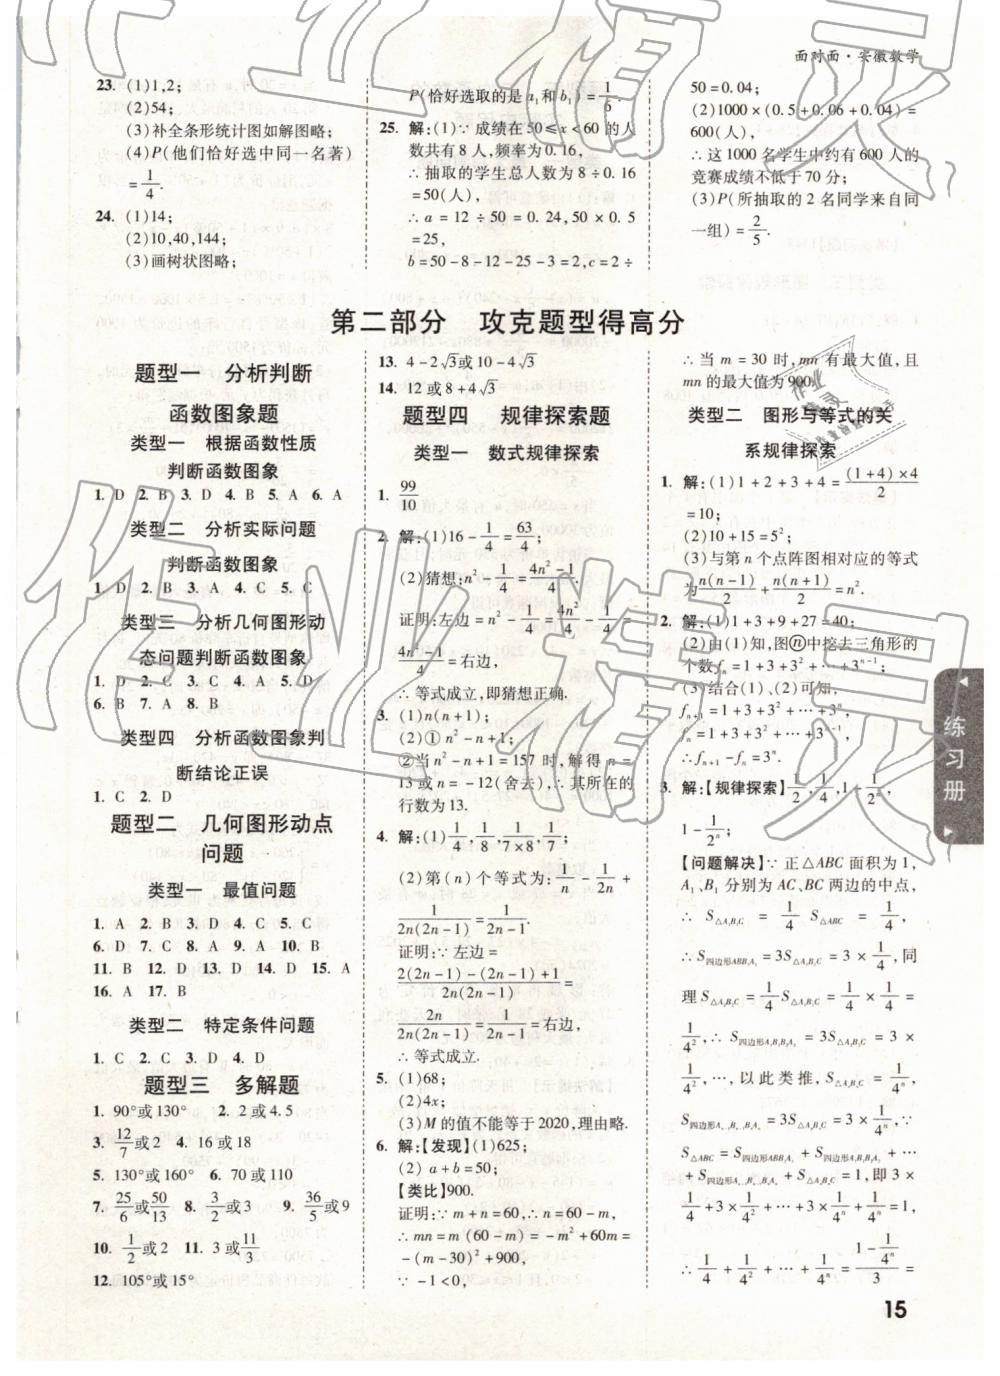 面对面·安徽数学
23. (1)1,2;
(2)54;
(3)补全条形统计图如解图略;
(4)P(他们恰好选中同一名著)
=1/4.
24. (1)14;
(2)10,40,144;
(3)画树状图略;
P(恰好选取的是a₁和b₁)=1/6.
25. 解:(1)∵成绩在50≤x<60的人
数共有8人,频率为0.16,
∴抽取的学生总人数为8÷0.16
=50(人),
∴a=12÷50=0.24,50×0.5
=25,
b=50-8-12-25-3=2,c=2÷
50=0.04;
(2)1000×(0.5+0.06+0.04)=
600(人),
∴这1000名学生中约有600人的
竞赛成绩不低于70分;
(3)P(所抽取的2名同学来自同
一组)=2/5.
第二部分 攻克题型得高分
题型一 分析判断
函数图象题
类型一 根据函数性质
判断函数图象
1. D 2. B 3. D 4. B 5. A 6. A
类型二 分析实际问题
判断函数图象
1. D 2. B 3. A 4. C 5. C
类型三 分析几何图形动
态问题判断函数图象
1. D 2. C 3. C 4. A 5. D
6. B 7. A 8. B
类型四 分析函数图象判
断结论正误
1. C 2. D
题型二 几何图形动点
问题
类型一 最值问题
1. A 2. B 3. D 4. C 5. D
6. D 7. C 8. A 9. A 10. B
11. B 12. D 13. D 14. D 15. A
16. A 17. B
类型二 特定条件问题
1. C 2. C 3. D 4. D
题型三 多解题
1. 90°或130° 2. 2或4.5
3. 12/7或2 4. 16或18
5. 130°或160° 6. 70或110
7. 25/6或50/13 8. 3/2或3 9. 36/5或9
10. 1/2或2 11. 3或11/3
12. 105°或15°
13. 4-2√3或10-4√3
14. 12或8+4√3
题型四 规律探索题
类型一 数式规律探索
1. 99/10
2. 解:(1)16-1/4=63/4;
(2)猜想:n²-1/4=(4n²-1)/4.
证明:左边=n²-1/4=4n²/4-1/4=
(4n²-1)/4=右边,
∴等式成立,即猜想正确.
3. (1)n(n+1);
(2)①n²-n+1;
②当n²-n+1=157时,解得n=
13或n=-12(舍去),∴其所在的
行数为13.
4. 解:(1)1/4,1/8,1/(7×8),1/7;
(2)第(n)个等式为:1/n-1/2n+
1/(2n(2n-1))=1/(2n-1).
证明:∵左边=
(2(2n-1)-(2n-1)+1)/(2n(2n-1))=
2n/(2n(2n-1))=1/(2n-1)=右边,
∴等式成立.
5. (1)68;
(2)4x;
(3)M的值不能等于2020,理由略.
6. 解:【发现】(1)625;
(2)a+b=50;
【类比】900.
证明:∵m+n=60,∴n=60-m,
∴mn=m(60-m)=-m²+60m=
-(m-30)²+900,
∵-1<0,
∴当m=30时,mn有最大值,且
mn的最大值为900.
类型二 图形与等式的关
系规律探索
1. 解:(1)1+2+3+4=((1+4)×4)/2
=10;
(2)10+15=5²;
(3)与第n个点阵图相对应的等式
为n(n-1)/2+n(n+1)/2=n².
2. 解:(1)1+3+9+27=40;
(2)由(1)知,图ⓝ中挖去三角形的
个数fₙ=1+3+3²+…+3ⁿ⁻¹;
(3)结合(1),(2)可知,
fₙ₊₁=1+3+3²+…+3ⁿ,
fₙ=1+3+3²+…+3ⁿ⁻¹,
∴fₙ₊₁-fₙ=3ⁿ.
3. 解:【规律探索】1/2,1/4,1-1/8,
1-1/2ⁿ;
【问题解决】∵正△ABC面积为1,
A₁、B₁分别为AC、BC两边的中点,
∴S△A₁B₁C=1/4S△ABC=1/4,
∴S四边形ABB₁A₁=3S△A₁B₁C=3×1/4,同
理S△A₂B₂C=1/4S△A₁B₁C=1/4×1/4=
1/4²,∴S四边形A₁B₁B₂A₂=3S△A₂B₂C=3×
1/4²,…,以此类推,S△AₙBₙC=1/4ⁿ,
S四边形Aₙ₋₁Bₙ₋₁BₙAₙ=3S△AₙBₙC=3×1/4ⁿ,∵
S△ABC=S四边形ABB₁A₁+S四边形A₁B₁B₂A₂+…
+S四边形Aₙ₋₁Bₙ₋₁BₙAₙ+S△AₙBₙC=1,即3×
1/4+3×1/4²+…+3×1/4ⁿ+1/4ⁿ=1,
∴1/4+1/4²+…+1/4ⁿ=(1-1/4ⁿ)/3=
练习册
15
作业精灵